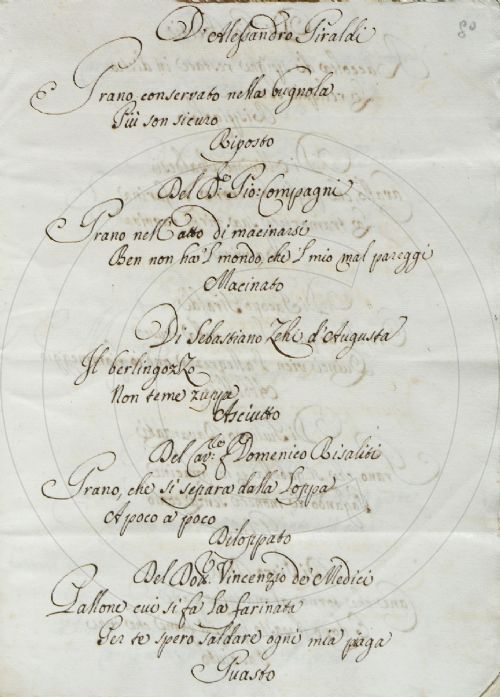 80
Di Alessandro Giraldi
Grano conservato nella bugnola
Più son sicuro
Riposto
Del D.re Gio: Compagni
Grano nell'atto di macinarsi
Ben non ha 'l mondo, che 'l mio mal pareggi
Macinato
Di Sebastiano Zehi d'Augusta
Il berlingozzo
Non teme zuppa
Asciutto
Del Cav:re Domenico Risaliti
Grano, che si separa dalla loppa
A poco a poco
Diloppato
Del Vincenzio de Medici
Pallone cui si fa la farinata
Per te spero saldare ogni mia piaga
Guasto